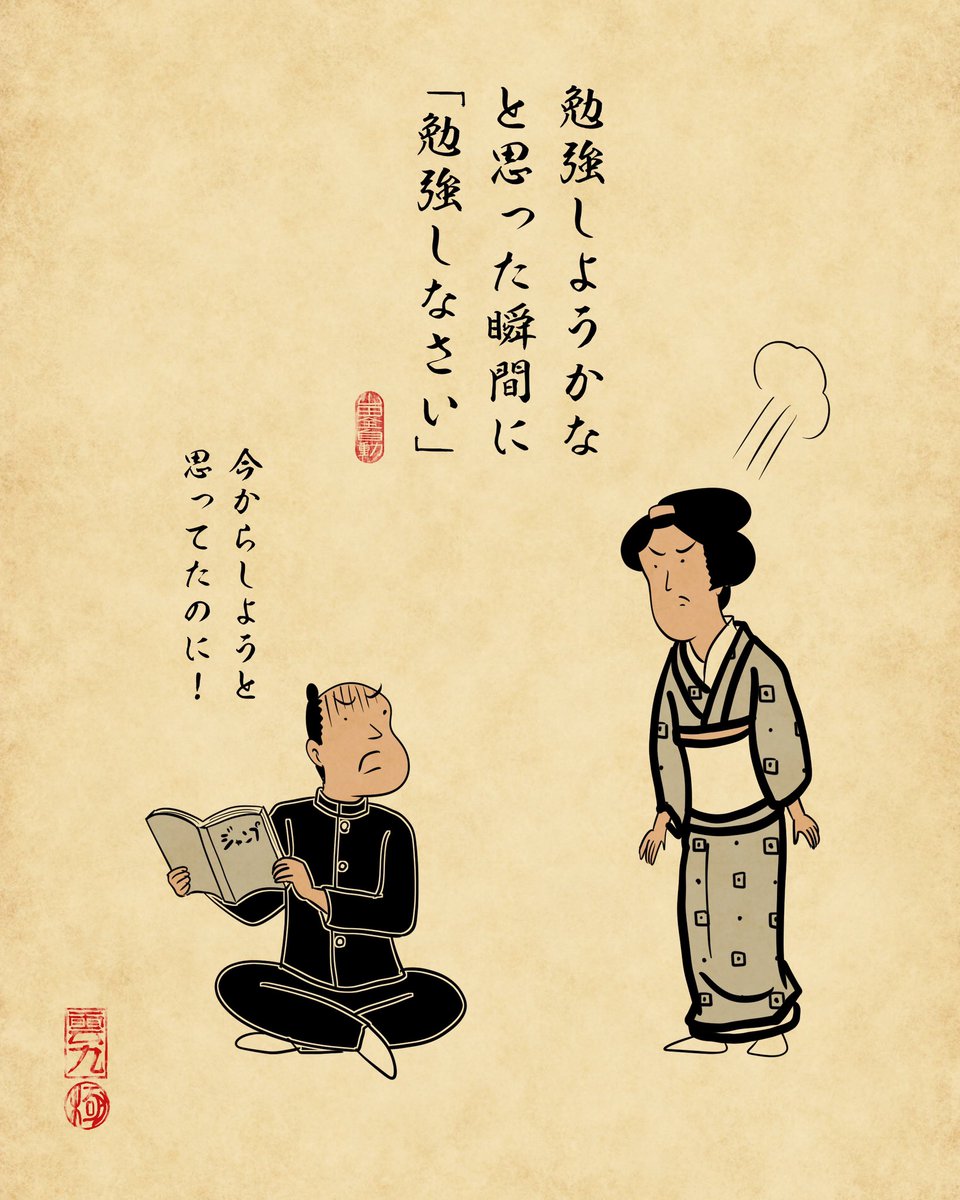 勉強しようかな
と思った瞬間に
「勉強しなさい」
今からしようと
思ってたのに！
ジャンプ